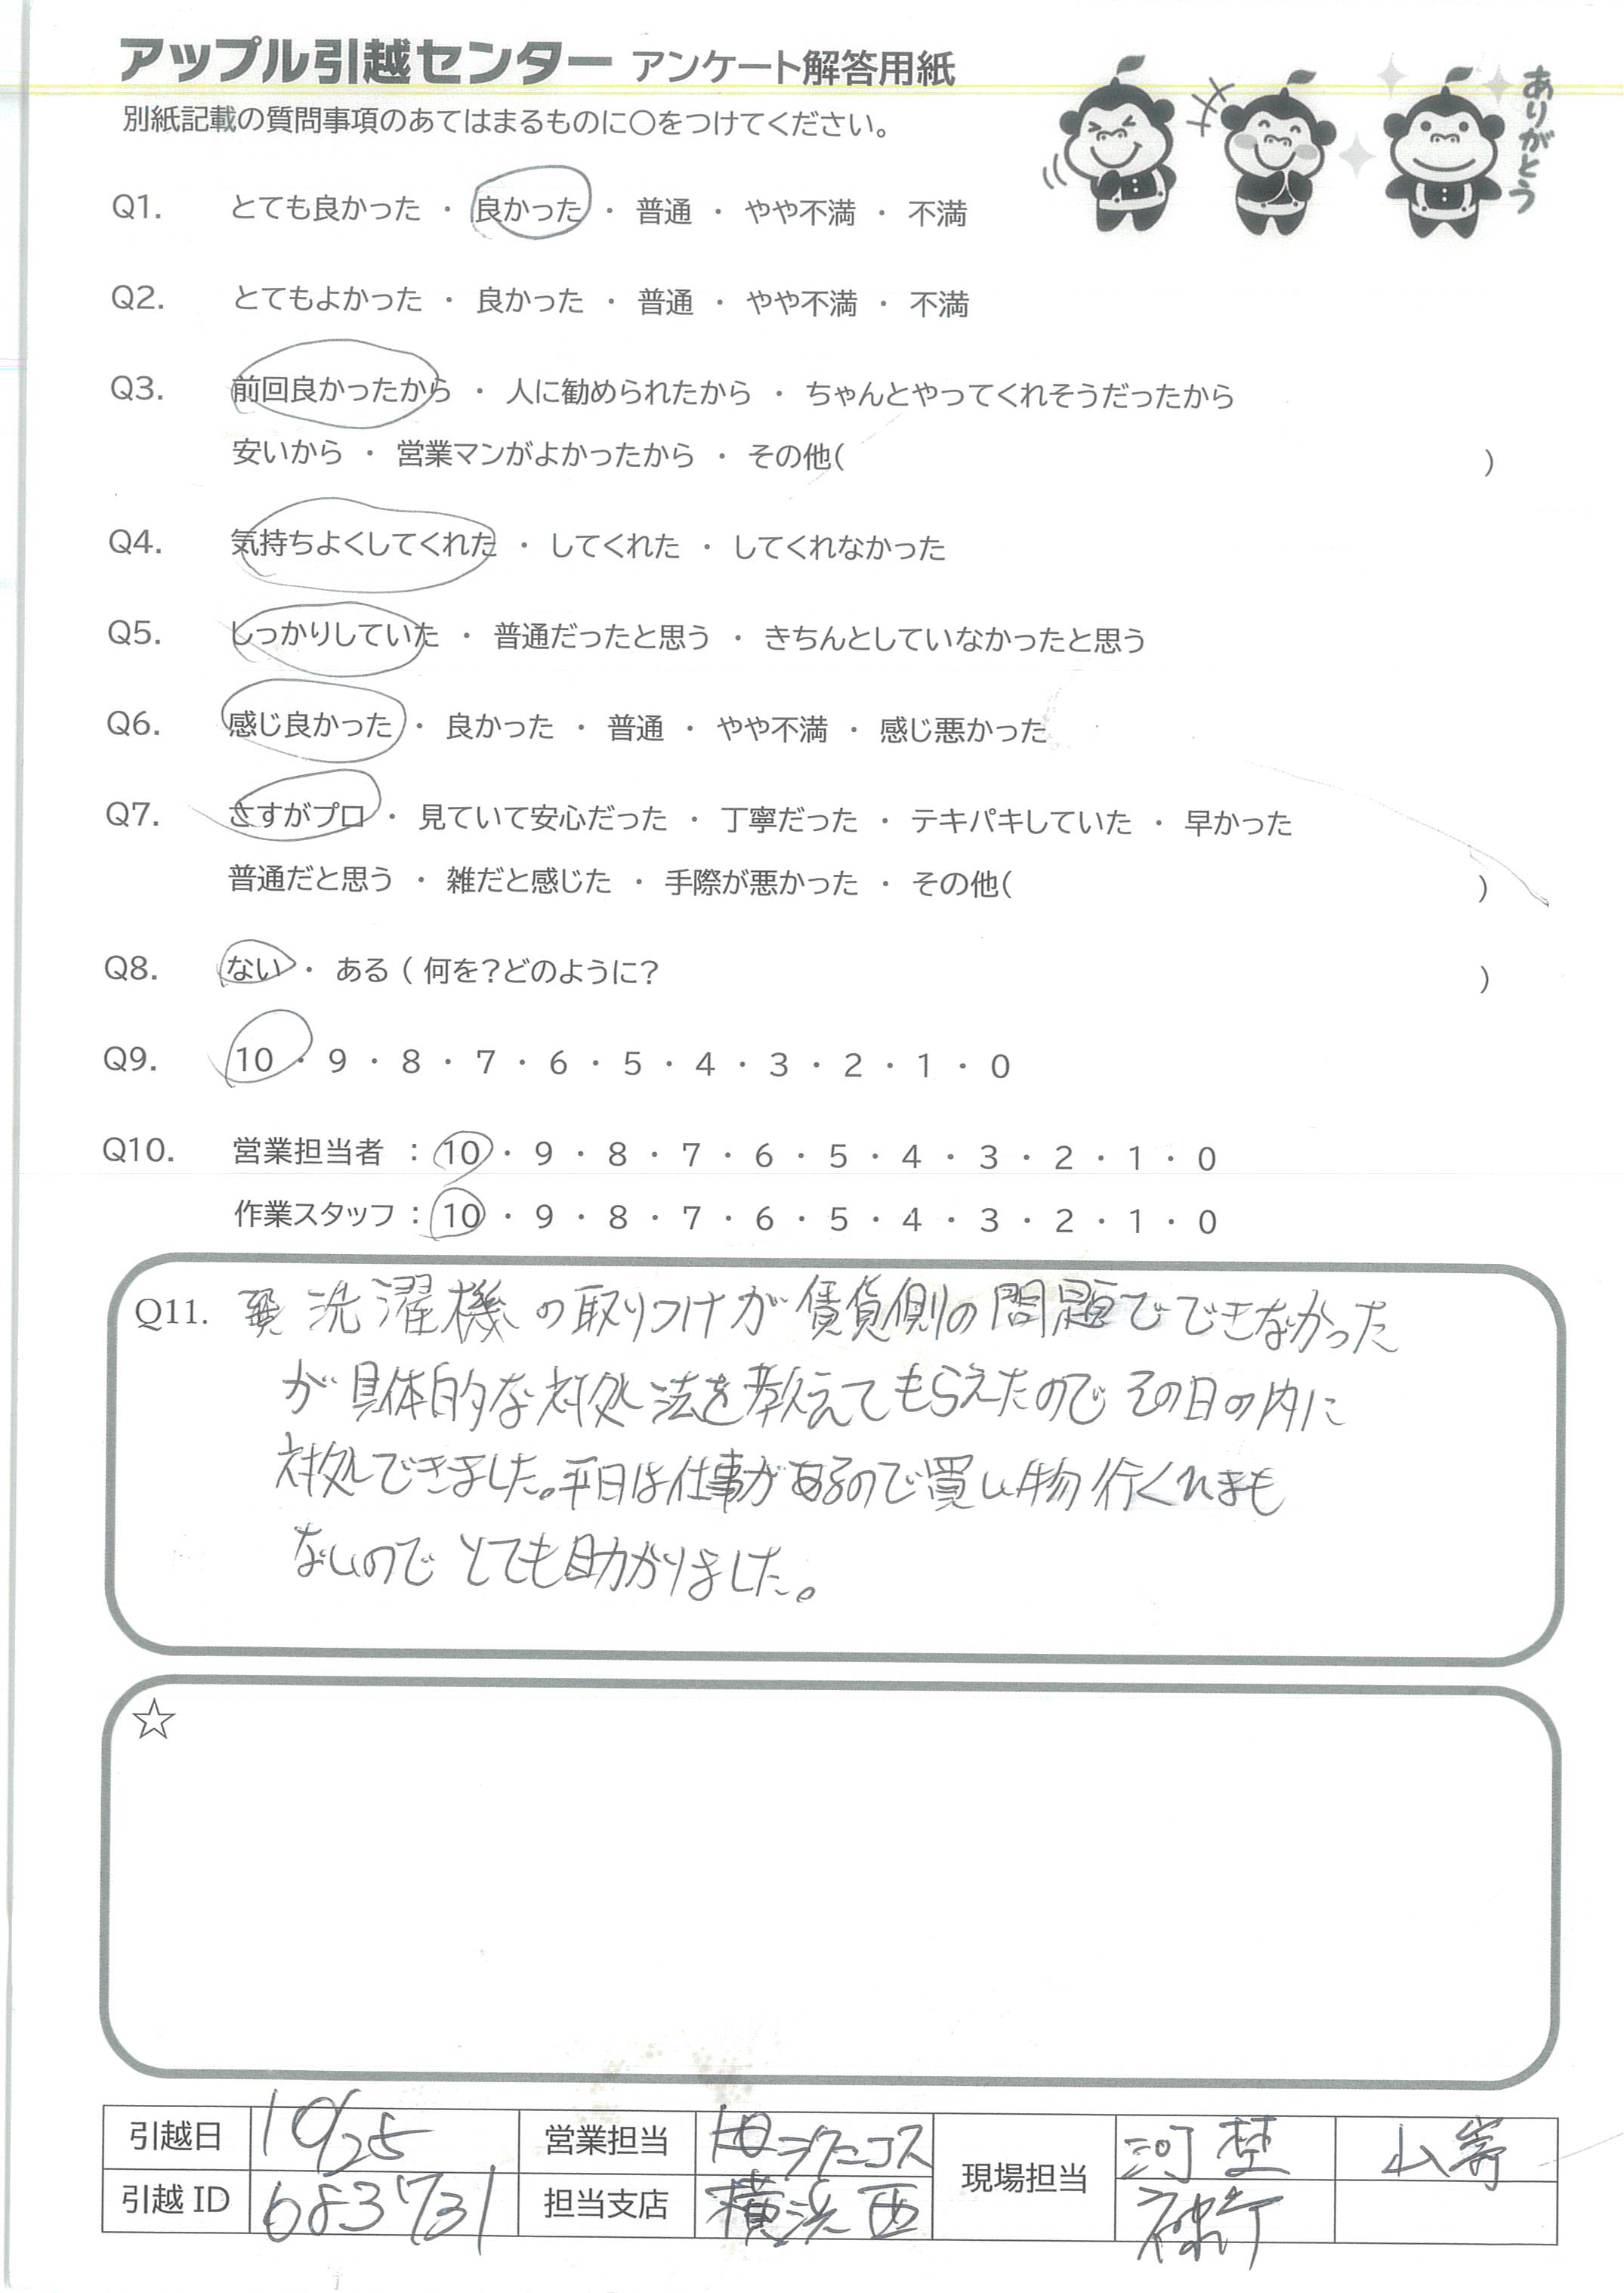 アップル引越センター アンケート解答用紙
別紙記載の質問事項のあてはまるものに〇をつけてください。
ありがとう
Q1. とても良かった ・ 良かった ・ 普通 ・ やや不満 ・ 不満
Q2. とてもよかった ・ 良かった ・ 普通 ・ やや不満 ・ 不満
Q3. 前回良かったから ・ 人に勧められたから ・ ちゃんとやってくれそうだったから
安いから ・ 営業マンがよかったから ・ その他( )
Q4. 気持ちよくしてくれた ・ してくれた ・ してくれなかった
Q5. しっかりしていた ・ 普通だったと思う ・ きちんとしていなかったと思う
Q6. 感じ良かった ・ 良かった ・ 普通 ・ やや不満 ・ 感じ悪かった
Q7. さすがプロ ・ 見ていて安心だった ・ 丁寧だった ・ テキパキしていた ・ 早かった
普通だと思う ・ 雑だと感じた ・ 手際が悪かった ・ その他( )
Q8. ない ・ ある ( 何を?どのように? )
Q9. 10 ・ 9 ・ 8 ・ 7 ・ 6 ・ 5 ・ 4 ・ 3 ・ 2 ・ 1 ・ 0
Q10. 営業担当者 : 10 ・ 9 ・ 8 ・ 7 ・ 6 ・ 5 ・ 4 ・ 3 ・ 2 ・ 1 ・ 0
作業スタッフ : 10 ・ 9 ・ 8 ・ 7 ・ 6 ・ 5 ・ 4 ・ 3 ・ 2 ・ 1 ・ 0
Q11. 洗濯機の取りつけが賃貸側の問題でできなかった
が具体的な対処法を教えてもらえたのでその日の内に
対処できました。平日は仕事があるので買い物行くひまも
ないのでとても助かりました。
☆
引越日 10/25 営業担当 現場担当 河埜 山嵜
引越ID 683731 担当支店 横浜西